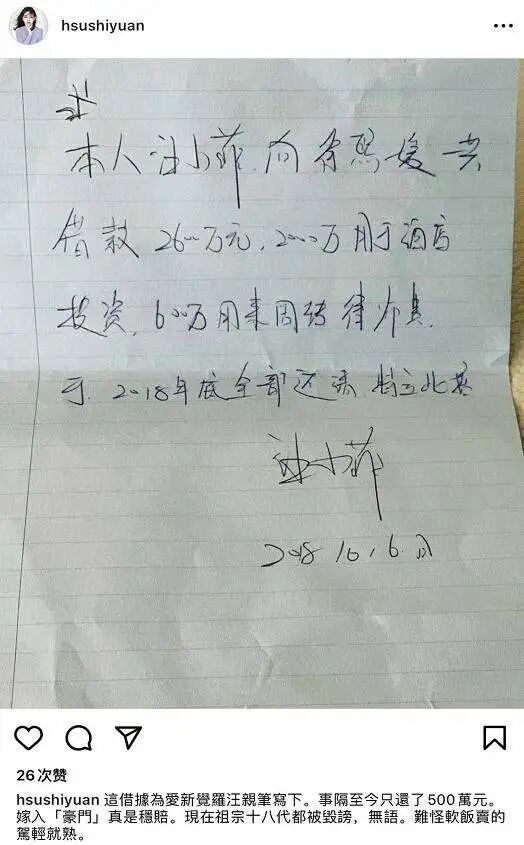 hsushiyuan
本人汪小菲.向徐熙媛共
借款 2600万元,2000万用于酒店
投资,600万用来周转律师费.
于.2018年底全部还清 特立此
汪小菲
2018.10.6.日
26次赞
hsushiyuan 這借據為愛新覺羅汪親筆寫下。事隔至今只還了500萬元。
嫁入「豪門」真是穩賠。現在祖宗十八代都被毀謗，無語。難怪軟飯賣的
駕輕就熟。